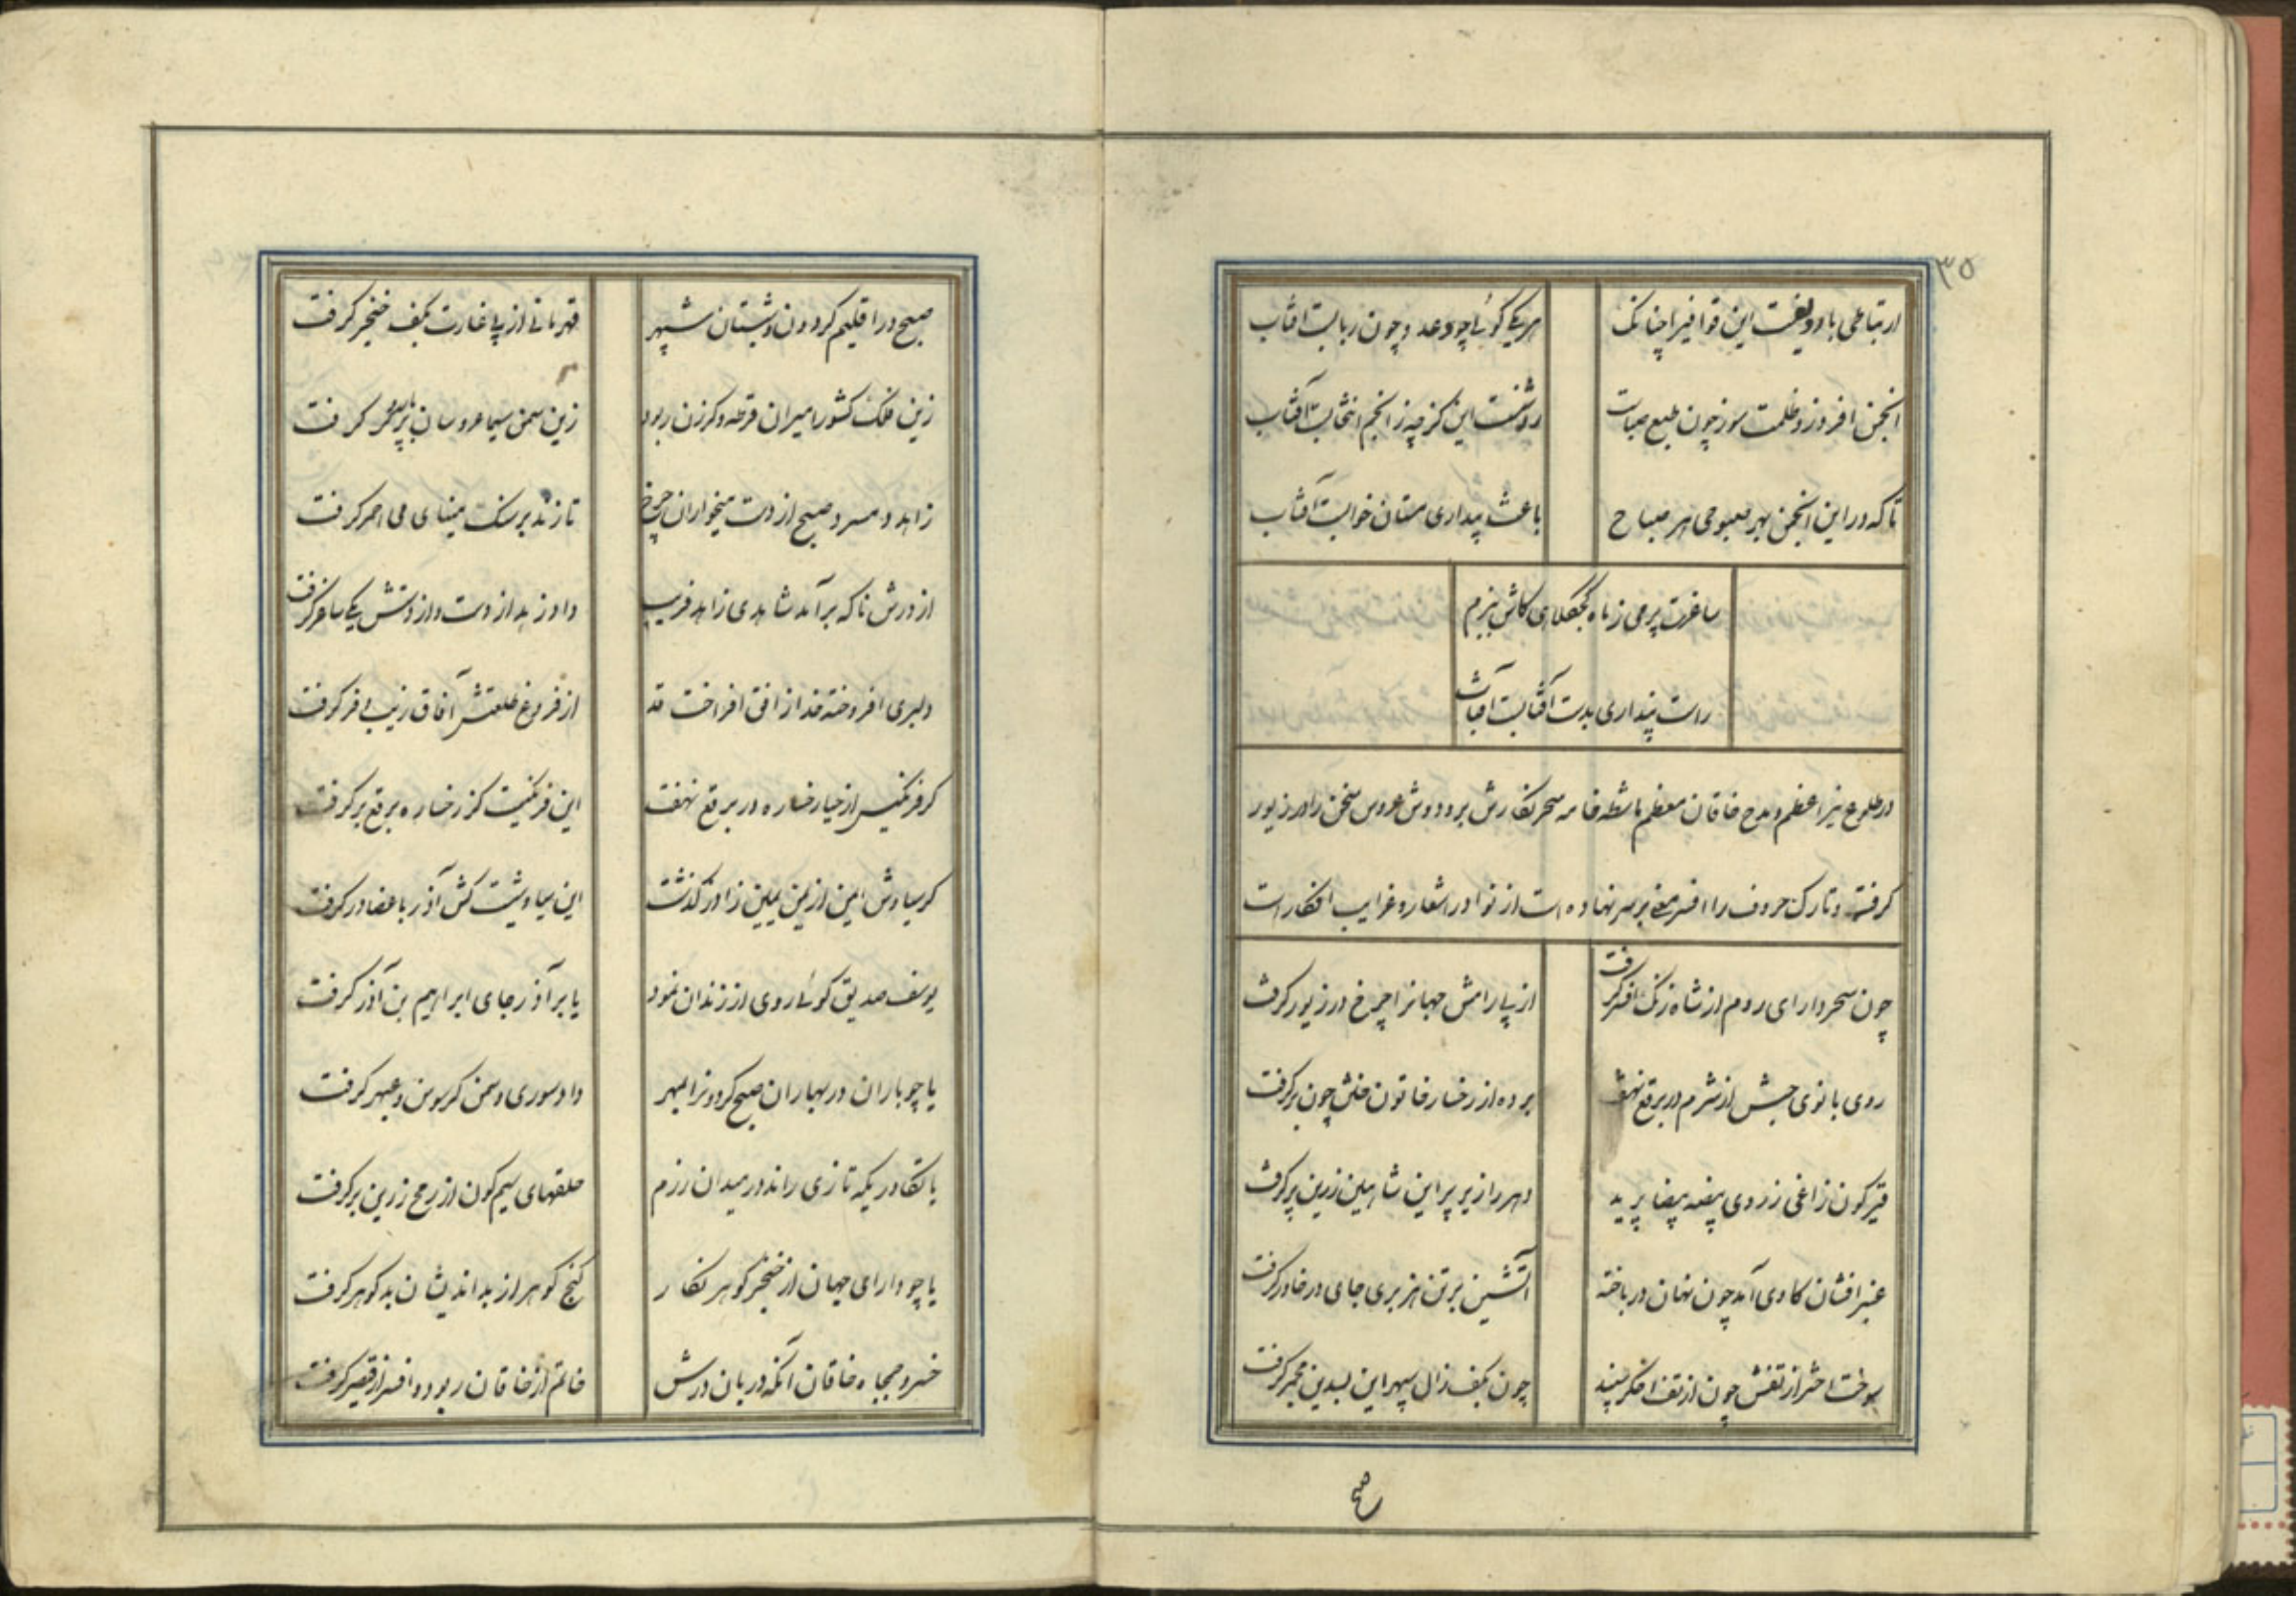 ۳۵
ارتباطی با ردیفست این قوافی را چنانک
هر یکی گوئی چو دعد و چون ربابست آفتاب
انجمن افروز و ظلمت سوز چون طبع صبات
روشنست این کز چه ز انجم انتخابست آفتاب
تا که در این انجمن بهر صبوحی هر صباح
باعث بیداری مستان خوابست آفتاب
ساغرت پر می ز ماه کجکلاهی کاش ببزم
راست پنداری بدست آفتابست آفتاب
در طلوع نیر اعظم و مدح خاقان معظم ماشطه خامه سحر نگارش بر و دوش عروس سخن را در زیور
گرفته و تارک حروف را افسر معنی بر سر نهاده است از نوادر اشعار و غرایب افکار است
چون سحر دارای روم از شاه زنگ افسر گرفت
از پی رامش جهانرا چرخ در زیور گرفت
روی بانوی حبش از شرم در برقع نهفت
پرده از رخسار خاتون ختن چون بر گرفت
قیرگون زاغی ز روی بیضه بیضا پرید
دهر را زیر پر این شاهین زرین پر گرفت
عنبر افشان گاوی آمد چون نهان در باخته
آتشین برتن هزبری جای در خاور گرفت
سوخت اختر از تفش چون از تف اخگر سپند
چون بکف زال سپهر این بسدین مجمر گرفت
صبح
صبح در اقلیم گردون و شبستان سپهر
قهرمانی از پی غارت بکف خنجر گرفت
زین فلک کشور امیران قرطه و گرزن ربود
زین سمن سیما عروسان گرفت
زاهد و همسرد صبح از دست میخواران چرخ
تا زند بر سنگ مینای می احمر گرفت
از درش ناگه برآمد شاهدی زاهد فریب
داد زهد از دست و از دستش یکی ساغر گرفت
دلبری افروخته خد از افق افراخت قد
از فروغ طلعتش آفاق زیب و فر گرفت
گر فرنگیس از حیا رخساره در برقع نهفت
این فرنگیست کز رخساره برقع بر گرفت
گر سیاوش ایمن از یمن یمین ز آذر گذشت
این سیاوشیست کش آذر باعضا در گرفت
یوسف صدیق گوئی روی از زندان نمود
یا بر آذر جای ابراهیم بن آذر گرفت
یا چو باران در بهاران صبح کرد و نزا لمهر
داد سوری و سمن گر سوسن و عبهر گرفت
با تکاور یکه تازی راند در میدان رزم
حلقهای سیم گون از رمح زرین بر گرفت
یا چو دارای جهان از خنجر گوهر نگار
گنج گوهر از بد اندیشان بد گوهر گرفت
خسرو جمجاه خاقان آنکه دربان درش
خاتم از خاقان ربود و افسر از قیصر گرفت